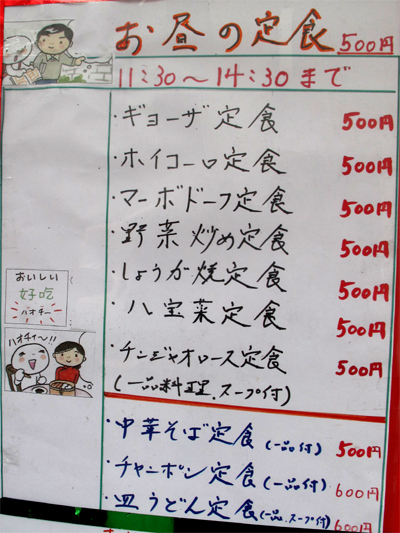 お昼の定食 500円
11:30〜14:30まで
・ギョーザ定食 500円
・ホイコーロ定食 500円
・マーボドーフ定食 500円
・野菜炒め定食 500円
・しょうが焼定食 500円
・八宝菜定食 500円
・チンジャオロース定食 500円
(一品料理、スープ付)
おいしい
好吃
ハオチー
ハオチィ〜!!
・中華そば定食(一品付) 500円
・チャンポン定食(一品付) 600円
・皿うどん定食(一品、スープ付) 600円